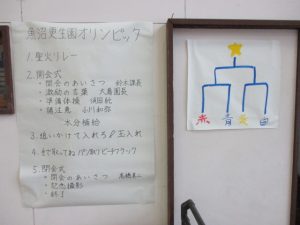 魚沼更生園オリンピック
1.聖火リレー
2.開会式
・開会のあいさつ 鈴木課長
・激励の言葉 大島園長
・準備体操
・諸注意 小川和弥
水分補給
3.追いかけて入れろ!玉入れ
4.パン取りビーチフラッグ
5.閉会式
・閉会のあいさつ
・記念撮影
・終了
赤 青 黄 白